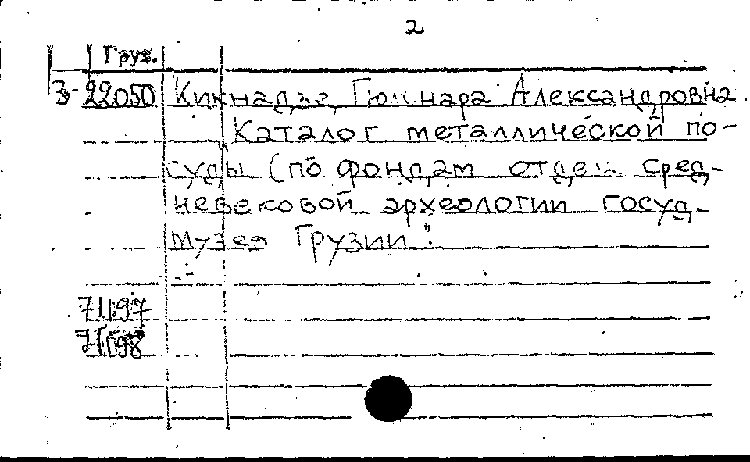 2
Груз.
З-22050 Кикнадзе, Гюлнара Александровна.
Каталог металлической по-
суды (по фондам отдел сред-
невековой археологии госуд.
музея Грузии".
71197
71198